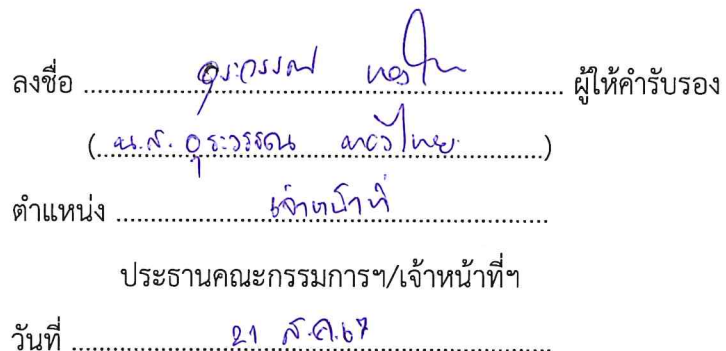 ลงชื่อ ........ อุระวรรณ ........ ผู้ให้คำรับรอง
( น.ส. อุระวรรณ ........ )
ตำแหน่ง ........ เจ้าหน้าที่ ........
ประธานคณะกรรมการฯ/เจ้าหน้าที่ฯ
วันที่ ........ 21 ส.ค. 67 ........